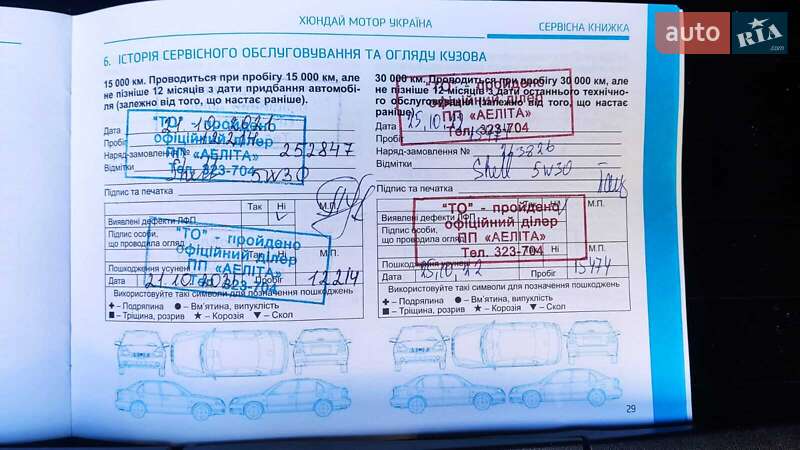 ХЮНДАЙ МОТОР УКРАЇНА
СЕРВІСНА КНИЖКА
auto RIA.com
6. ІСТОРІЯ СЕРВІСНОГО ОБСЛУГОВУВАННЯ ТА ОГЛЯДУ КУЗОВА
15 000 км. Проводиться при пробігу 15 000 км, але
не пізніше 12 місяців з дати придбання автомобі-
ля (залежно від того, що настає раніше).
Дата 21.10.2021
Пробіг 12214
Наряд-замовлення № 252847
Відмітки Shell 5W30
"ТО" - пройдено
офіційний ділер
ПП «АЕЛІТА»
Тел. 323-704
Підпис та печатка
Так Ні М.П.
Виявлені дефекти ЛФП
Підпис особи,
що проводила огляд
Так Ні М.П.
Пошкодження усунені
Дата 21.10.2021 Пробіг 12214
"ТО" - пройдено
офіційний ділер
ПП «АЕЛІТА»
Тел. 323-704
Використовуйте такі символи для позначення пошкоджень
+ - Подряпина ● - Вм'ятина, випуклість
■ - Тріщина, розрив ★ - Корозія ▼ - Скол
30 000 км. Проводиться при пробігу 30 000 км, але
не пізніше 12 місяців з дати останнього технічно-
го обслуговування (залежно від того, що настає
раніше).
Дата 25.10.22
Пробіг 15474
Наряд-замовлення №
Відмітки Shell 5W30
"ТО" - пройдено
офіційний ділер
ПП «АЕЛІТА»
Тел. 323-704
Підпис та печатка
М.П.
Виявлені дефекти ЛФП
Підпис особи,
що проводила огляд
М.П.
Пошкодження усунені
Дата 25.10.22 Пробіг 15474
"ТО" - пройдено
офіційний ділер
ПП «АЕЛІТА»
Тел. 323-704
Використовуйте такі символи для позначення пошкоджень
+ - Подряпина ● - Вм'ятина, випуклість
■ - Тріщина, розрив ★ - Корозія ▼ - Скол
29